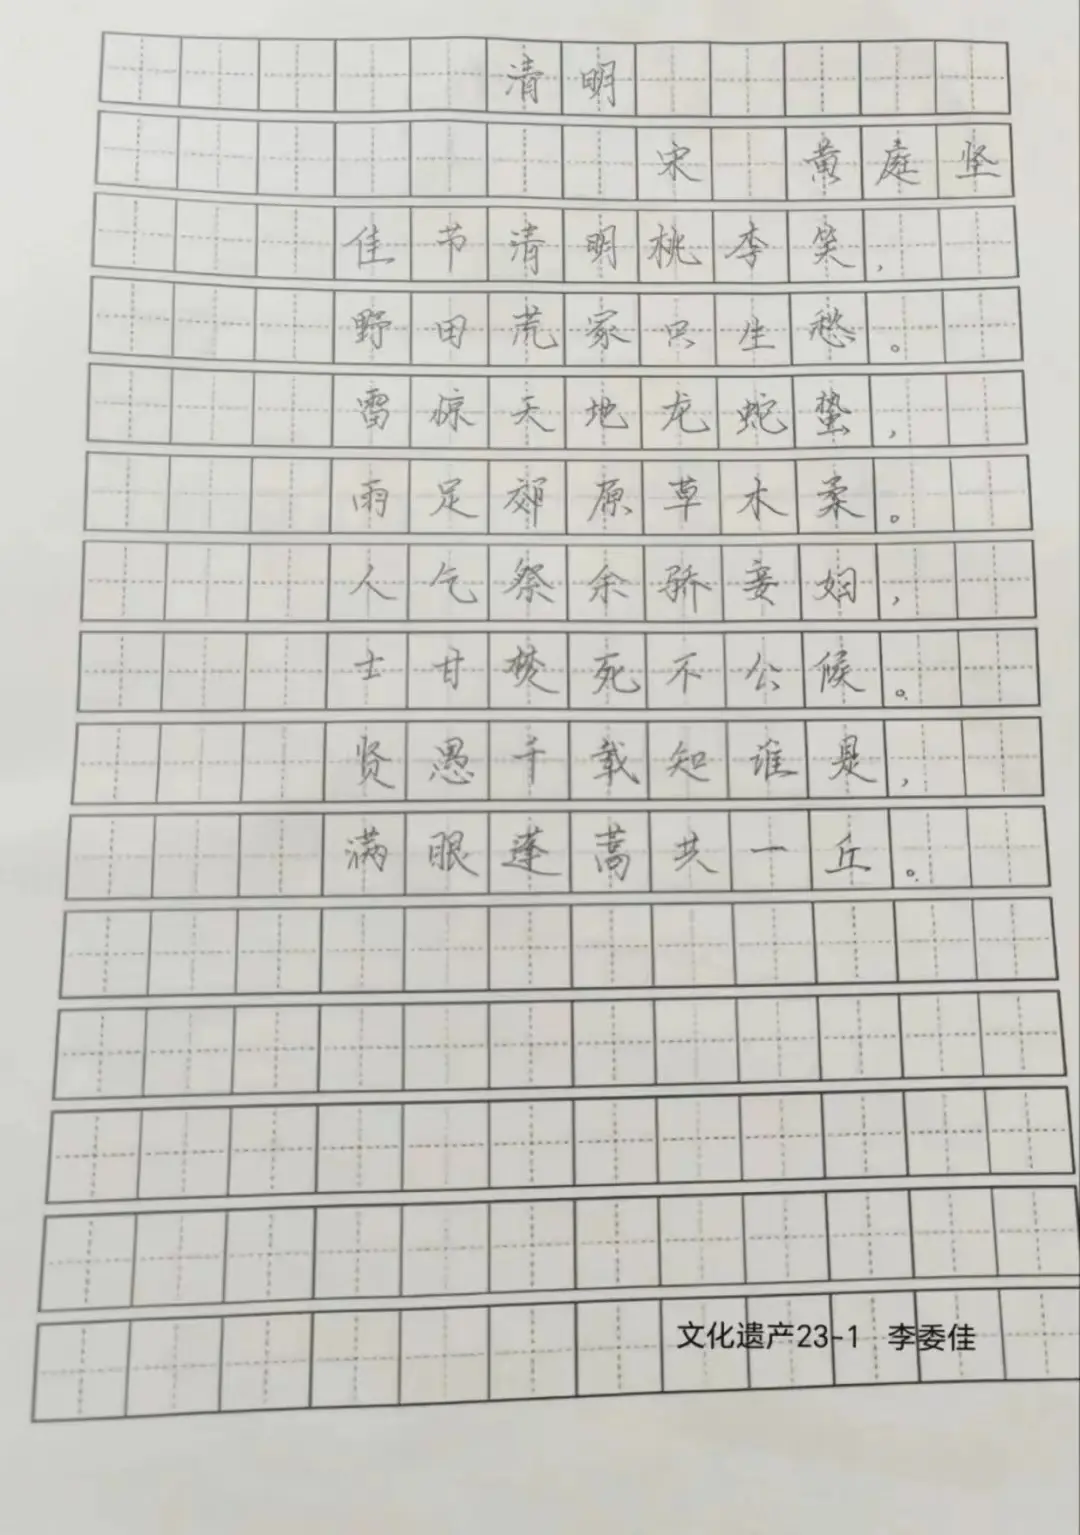 清明
宋 黄庭坚
佳节清明桃李笑，
野田荒冢只生愁。
雷惊天地龙蛇蛰，
雨足郊原草木柔。
人乞祭余骄妾妇，
士甘焚死不公候。
贤愚千载知谁是，
满眼蓬蒿共一丘。
文化遗产23-1 李委佳